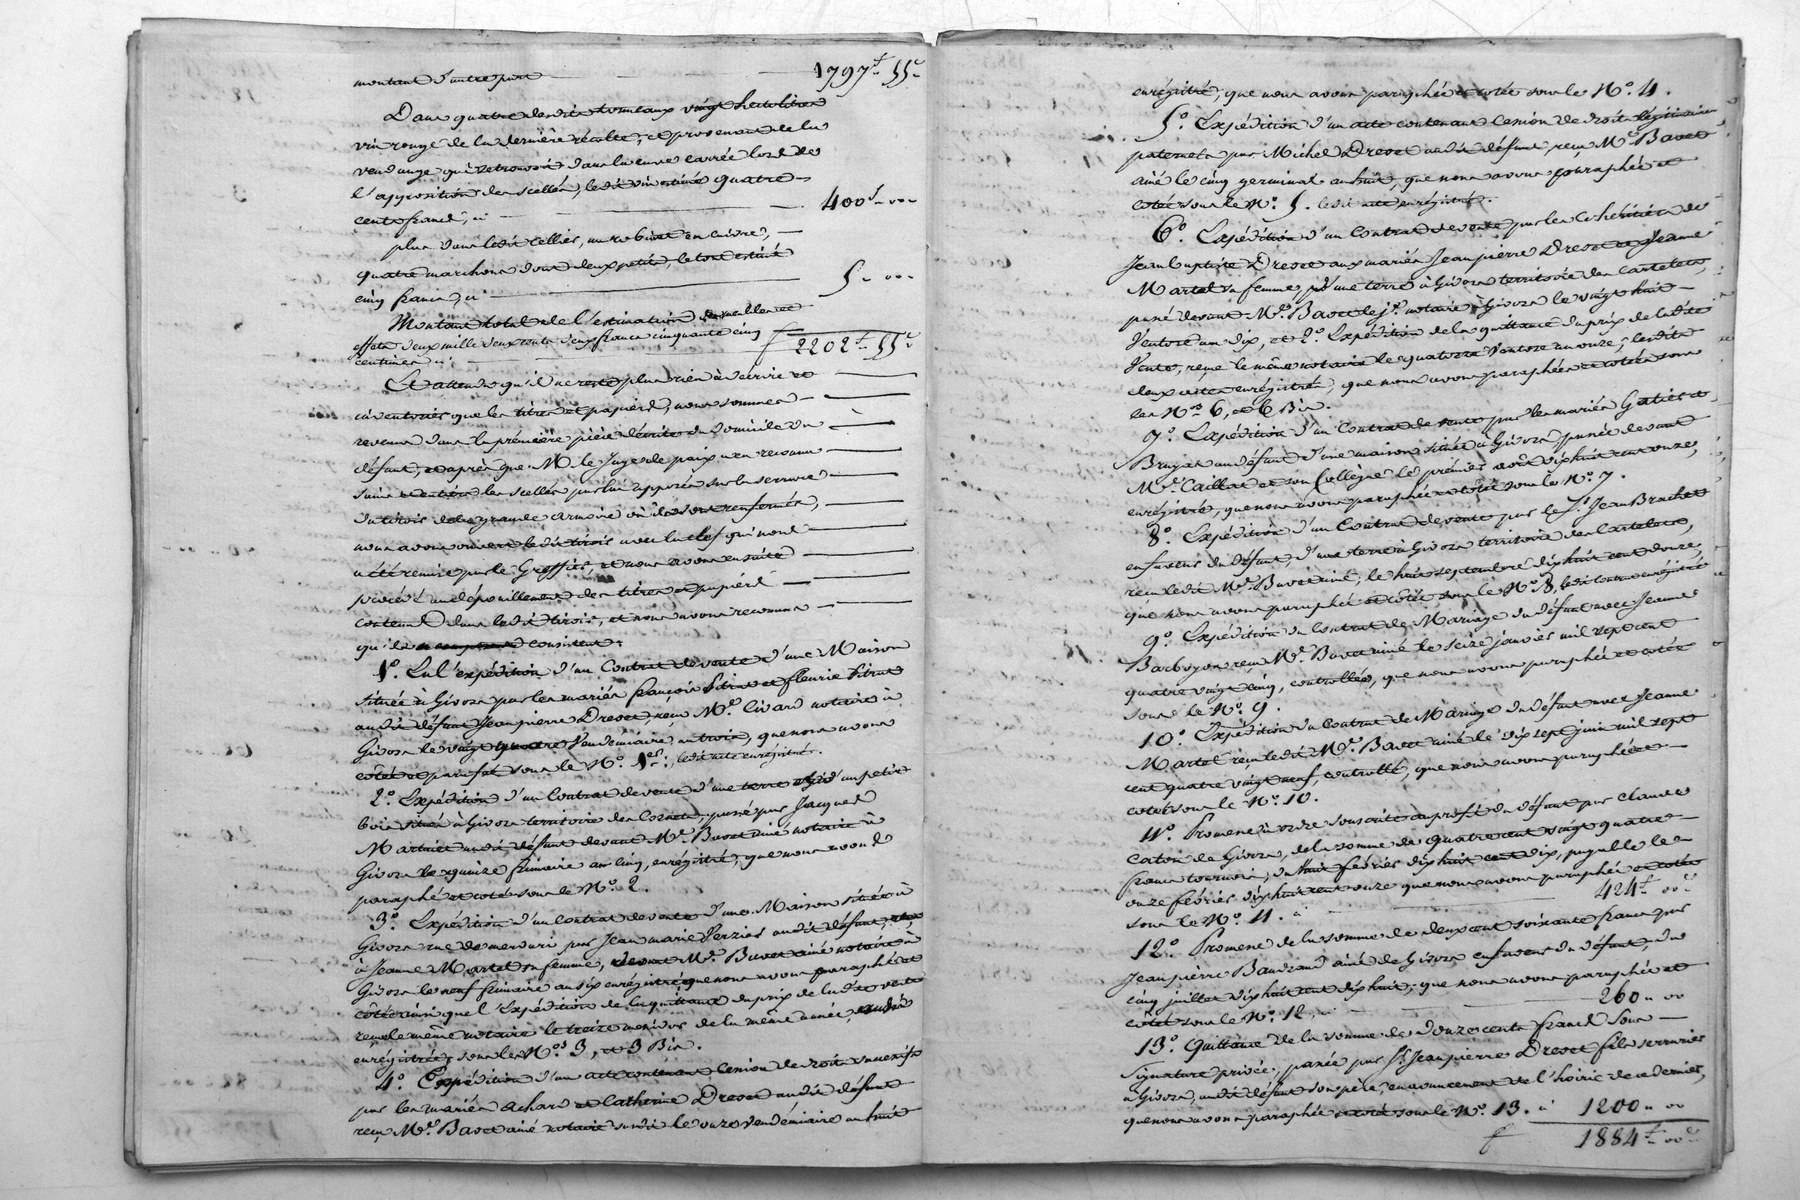 montant d'autre part 1797f.. 55c
Dans quatre desdits tonneaux vingt hectolitres
vin rouge de la dernière récolte, et provenant de la
vendange qui se trouvoit dans la cuve carrée lors de
l'apposition des scellés, ledit vin estimé quatre
cents francs, ci 400f.. 00..
plus dans ledit cellier, un robinet en cuivre,
quatre marchons dont deux petits, le tout estimé
cinq francs, ci 5.. 00..
Montant total de l'estimation des meubles et
effets deux mille deux cents deux francs cinquante cinq
centimes ci f 2202f.. 55c
Et attendu qu'il ne reste plus rien à décrire et
inventorier que les titres et papiers, nous sommes
revenus dans la première pièce décrite du domicile du
défunt, et après que M. le Juge de paix a eu reconnu
sains et entiers les scellés par lui apposés sur la serrure
du tiroir de la grande armoire où ils sont renfermés,
nous avons ouvert ledit tiroir avec la clef qui nous
a été remise par le Greffier, et nous avons ensuite
procédé au dépouillement des titres et papiers
contenus dans ledit tiroir, et nous avons reconnu
qu'ils consistent:
1o. En l'expédition d'un Contrat de vente d'une Maison
située à Givors par les mariés françois Pitrat et fleurie Pitrat
audit défunt Jean pierre Drevet reçu Me. Civard notaire à
Givors le vingt quatre Vendémiaire an trois, que nous avons
côté et parafé sous le No. 1er., ledit acte enregistré.
2o. Expédition d'un Contrat de vente d'une terre et d'un petit
bois situés à Givors territoire des Cornets, passé par Jacques
Martret audit défunt devant Me. Bavet ainé notaire à
Givors le quinze frimaire an cinq, enregistré, que nous avons
paraphé et coté sous le No. 2.
3o. Expédition d'un contrat de vente d'une Maison située à
Givors rue de par Jean marie Perzier audit défunt, et
à Jeanne Martel sa femme, devant Me. Bavet ainé notaire à
Givors le neuf frimaire an six enregistré que nous avons paraphé et
côté ainsi que l'Expédition de la quittance du prix de ladite vente
reçue le même notaire le treize messidor de la même année, aussi
enregistrée, sous les Nos 3, et 3 Bis.
4o. Expédition d'un acte contenant Cession de droits successifs
par les mariés Achard et Catherine Drevet audit défunt
reçu Me. Bavet ainé notaire susdit le onze vendémiaire an huit
enrégistré, que nous avons paraphée et cotée sous le No. 4.
5o. Expédition d'un acte contenant Cession de droits légitimaires
paternels par Michel Drevet audit défunt, reçu Me. Bavet
ainé le cinq germinal an huit, que nous avons paraphée et
cotée sous le No. 5. ledit acte enregistré.
6o. Expédition d'un Contrat de vente par les Cohéritiers de
Jean baptiste Drevet aux mariés Jean pierre Drevet et Jeanne
Martel sa femme, d'une terre à Givors territoire des Cartelets,
passé devant Me. Bavet le je. notaire à Givors le vingt huit
Ventose an dix, et 2o. Expédition de la quittance du prix de ladite
Vente, reçue le même notaire le quatorze Ventose an onze; lesdits
deux actes enrégistrés, que nous avons paraphées et cotées sous
les Nos 6, et 6 Bis.
7o. Expédition d'un Contrat de vente par les mariés Gatier et
Bruyat au défunt d'une maison située à Givors passée devant
Me. Caillat et son Collègue le premier août dix huit cent onze,
enregistré, que nous avons paraphée et cotée sous le No. 7.
8o. Expédition d'un Contrat de vente par le Sr. Jean Brachet
en faveur du défunt, d'une terre à Givors territoire des Cartelets,
reçu ledit Me. Bavet ainé, le huit septembre dix huit cent douze,
que nous avons paraphée et cotée sous le No. 8, ledit Contrat enregistré
9o. Expédition du Contrat de Mariage du défunt avec Jeanne
Barboyon reçu Me. Bavet ainé le seize janvier mil sept cent
quatre vingt cinq, controllée, que nous avons paraphée et cotée
sous le No. 9.
10o. Expédition du Contrat de Mariage du défunt avec Jeanne
Martel reçu ledit Me. Bavet ainé le dix sept juin mil sept
cent quatre vingt neuf, controllé, que nous avons paraphée et
cotée sous le No. 10.
11o. Promesse à ordre souscrite au profit du défunt par Claude
Caton de Givors, de la somme de quatre cent vingt quatre
francs tournois, du huit février dix huit cent dix, payable le
onze février dix huit cent onze que nous avons paraphée et cotée
sous le No. 11. ci 424f.. 00c
12o. Promesse de la somme de deux cent soixante francs par
Jean pierre Baudrand ainé de Givors en faveur du défunt, du
cinq juillet dix huit cent dix huit, que nous avons paraphée et
cotée sous le No. 12, ci 260.. 00
13o. Quittance de la somme de douze cents francs sous
signature privée, passée par Sr. Jean pierre Drevet fils serrurier
à Givors, audit défunt son père, en avancement de l'hoirie de ce dernier,
que nous avons paraphée et cotée sous le No. 13. ci 1200.. 00
f 1884f.. 00c